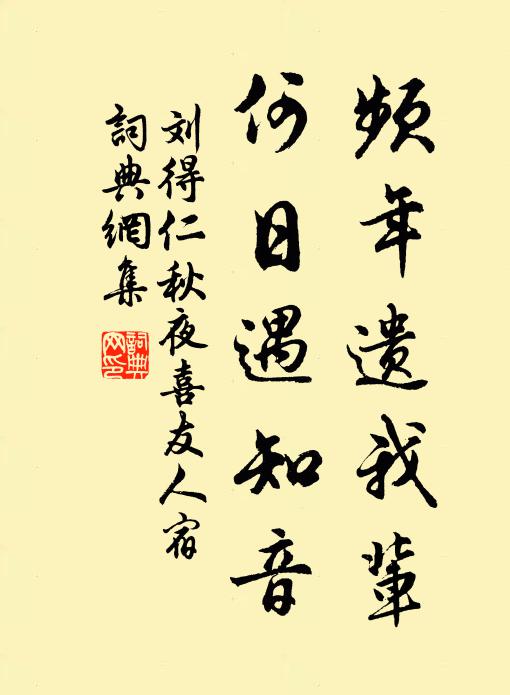 频年遗我輩
何日遇知音
刘得仁秋夜喜友人宿
詞典網集
詞典網印